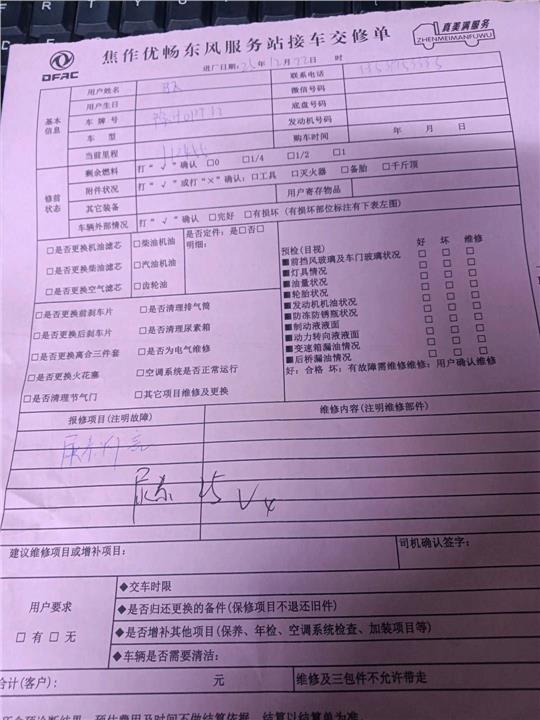 DFAC
焦作优畅东风服务站接车交修单
真美满服务
ZHENMEIMANFUWU
进厂日期: 25年12月22日 时
基本信息
用户姓名
联系电话
用户生日
微信号码
车牌号
底盘号码
车型
发动机号码
当前里程
购车时间 年 月 日
修前状态
剩余燃料 打“√”确认 □0 □1/4 □1/2 □1
附件状况 打“√”或打“×”确认: 口工具 □灭火器 □备胎 □千斤顶
其它装备
用户寄存物品
车辆外部情况 打“√”确认 □完好 □有损坏 (有损坏部位标注有下表左图)
□是否更换机油滤芯 □柴油机油
□是否更换柴油滤芯 □汽油机油
□是否更换空气滤芯 □齿轮油
是否定件: 是□否□
明细:
□是否更换前刹车片 □是否清理排气筒
□是否更换后刹车片 □是否清理尿素箱
□是否更换离合三件套 □是否为电气维修
□是否更换火花塞 □空调系统是否正常运行
□是否清理节气门 □其它项目维修及更换
预检(目视) 好 坏 维修
■前挡风玻璃及车门玻璃状况 □ □ □
■灯具情况 □ □ □
■油量状况 □ □ □
■轮胎状况 □ □ □
■发动机机油状况 □ □ □
■防冻防锈瓶状况 □ □ □
■制动液液面 □ □ □
■动力转向液液面 □ □ □
■变速箱漏油情况 □ □ □
■后桥漏油情况 □ □ □
好: 合格 坏: 有故障需维修维修: 用户确认维修
报修项目(注明故障)
维修内容(注明维修部件)
尿素
建议维修项目或增补项目:
司机确认签字:
用户要求
□有 □无
◆交车时限
◆是否归还更换的备件(保修项目不退还旧件)
◆是否增补其他项目(保养、年检、空调系统检查、加装项目等)
◆车辆是否需要清洁:
合计(客户): 元
维修及三包件不允许带走